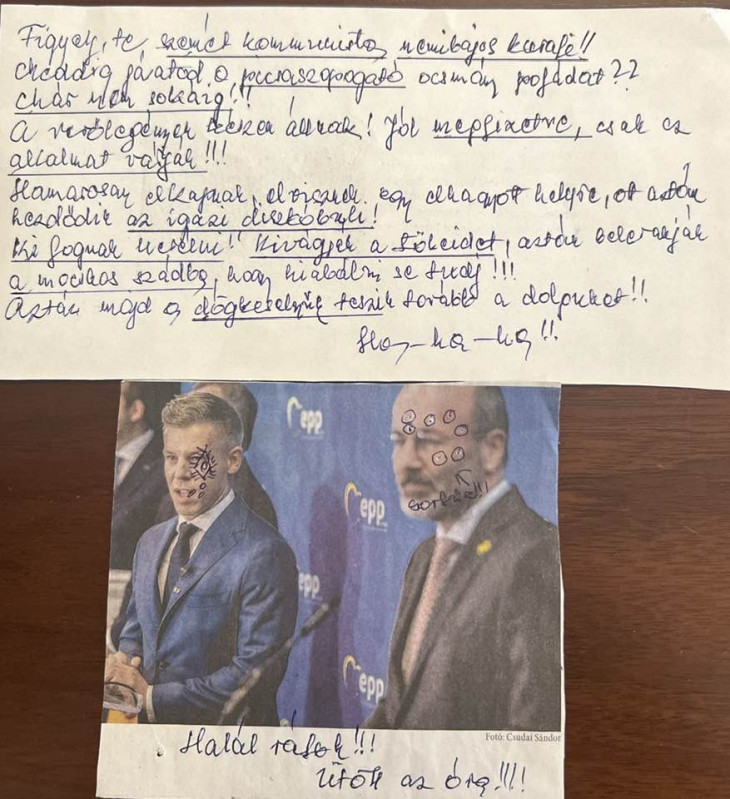 Figyelj, te, szemét kommunista, nemibajos kurafi!!
Meddig járatod a picsaszopogató ocsmány pofádat??
Már nem sokáig!!
A verőlegények készen állnak! Jól megfizetve, csak az
alkalmat várják!!!
Hamarosan elkapnak, elvisznek egy elhagyott helyre, ot aztán
kezdődik az igazi
Ki fognak herélni!! Kivágják a tökeidet, aztán belerakják
a mocskos szádba, hogy kiabálni se tudj!!!
Aztán majd a dögkeselyűk teszik tovább a dolgukat!!
Ha-ha-ha!!
epp
epp
epp
epp
Sortűz!!
Fotó: Csudai Sándor
Halál rátok!!!
Ütött az óra!!!!